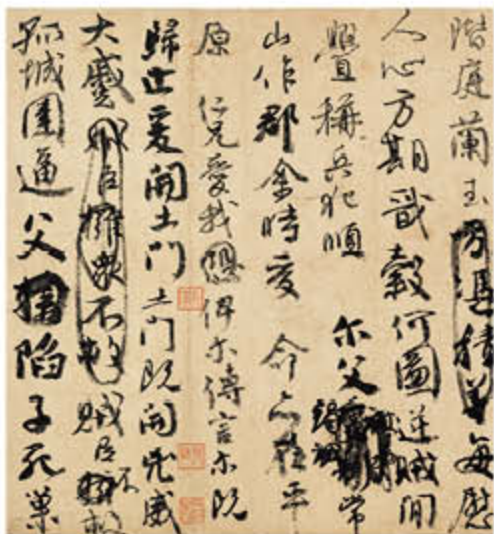 階庭蘭玉方憑積善每慰
人心方期戩穀何圖逆賊間
釁稱兵犯順尔父竭誠常
山作郡余時受命亦在平
原仁兄愛我恐俾尔傳言尔既
歸止爰開土門土門既開凶威
大蹙賊臣擁衆不救賊臣不救
孤城圍逼父陷子死巢